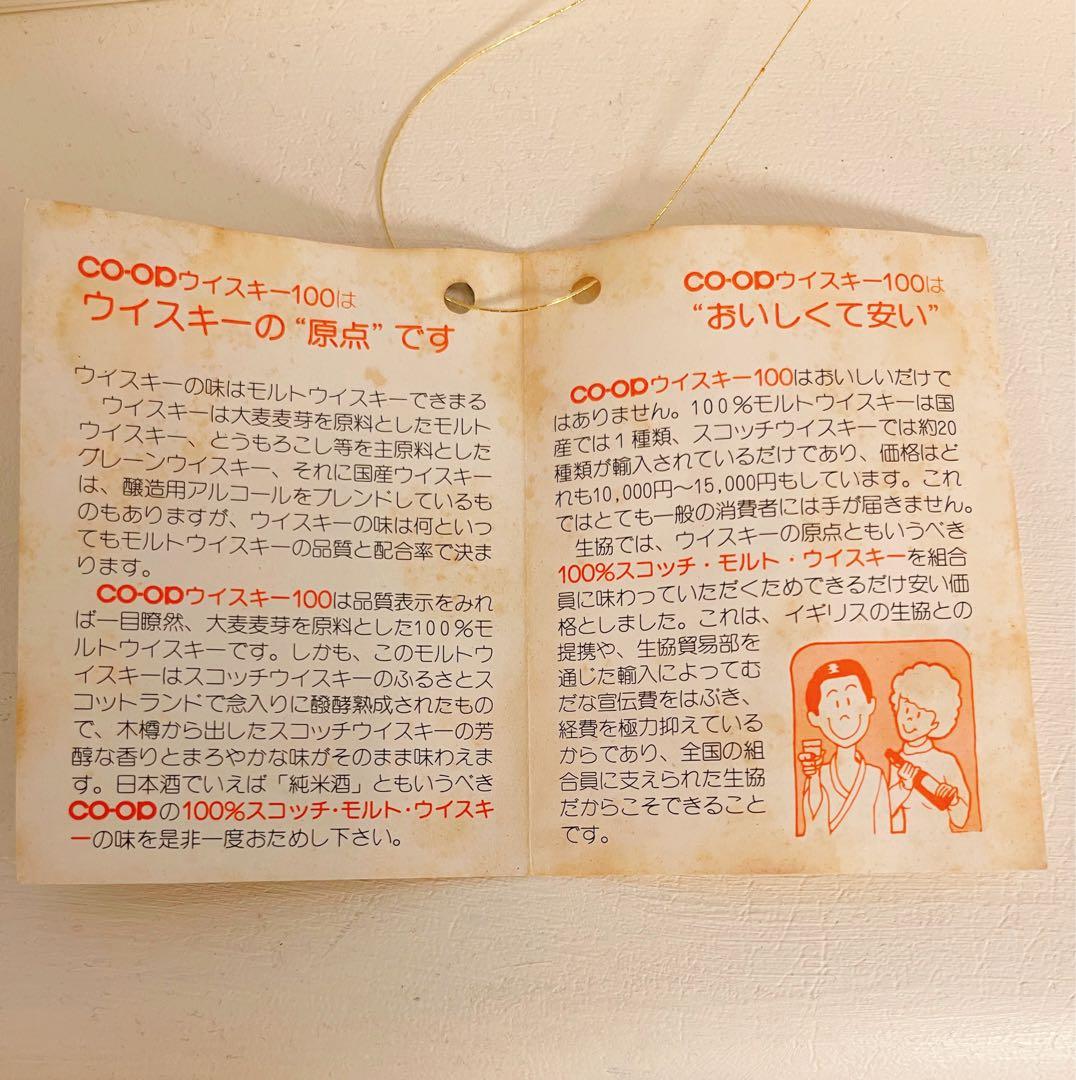 CO-OPウイスキー100は
ウイスキーの“原点”です
ウイスキーの味はモルトウイスキーできまる
ウイスキーは大麦麦芽を原料としたモルト
ウイスキー、とうもろこし等を主原料とした
グレーンウイスキー、それに国産ウイスキー
は、醸造用アルコールをブレンドしているも
のもありますが、ウイスキーの味は何といっ
てもモルトウイスキーの品質と配合率で決ま
ります。
CO-OPウイスキー100は品質表示をみれ
ば一目瞭然、大麦麦芽を原料とした100%モ
ルトウイスキーです。しかも、このモルトウ
イスキーはスコッチウイスキーのふるさとス
コットランドで念入りに醱酵熟成されたもの
で、木樽から出したスコッチウイスキーの芳
醇な香りとまろやかな味がそのまま味わえま
す。日本酒でいえば「純米酒」ともいうべき
CO-OPの100%スコッチ・モルト・ウイスキ
ーの味を是非一度おためし下さい。
CO-OPウイスキー100は
“おいしくて安い”
CO-OPウイスキー100はおいしいだけで
はありません。100%モルトウイスキーは国
産では1種類、スコッチウイスキーでは約20
種類が輸入されているだけであり、価格はど
れも10,000円〜15,000円もしています。これ
ではとても一般の消費者には手が届きません。
生協では、ウイスキーの原点ともいうべき
100%スコッチ・モルト・ウイスキーを組合
員に味わっていただくためできるだけ安い価
格としました。これは、イギリスの生協との
提携や、生協貿易部を
通じた輸入によってむ
だな宣伝費をはぶき、
経費を極力抑えている
からであり、全国の組
合員に支えられた生協
だからこそできること
です。